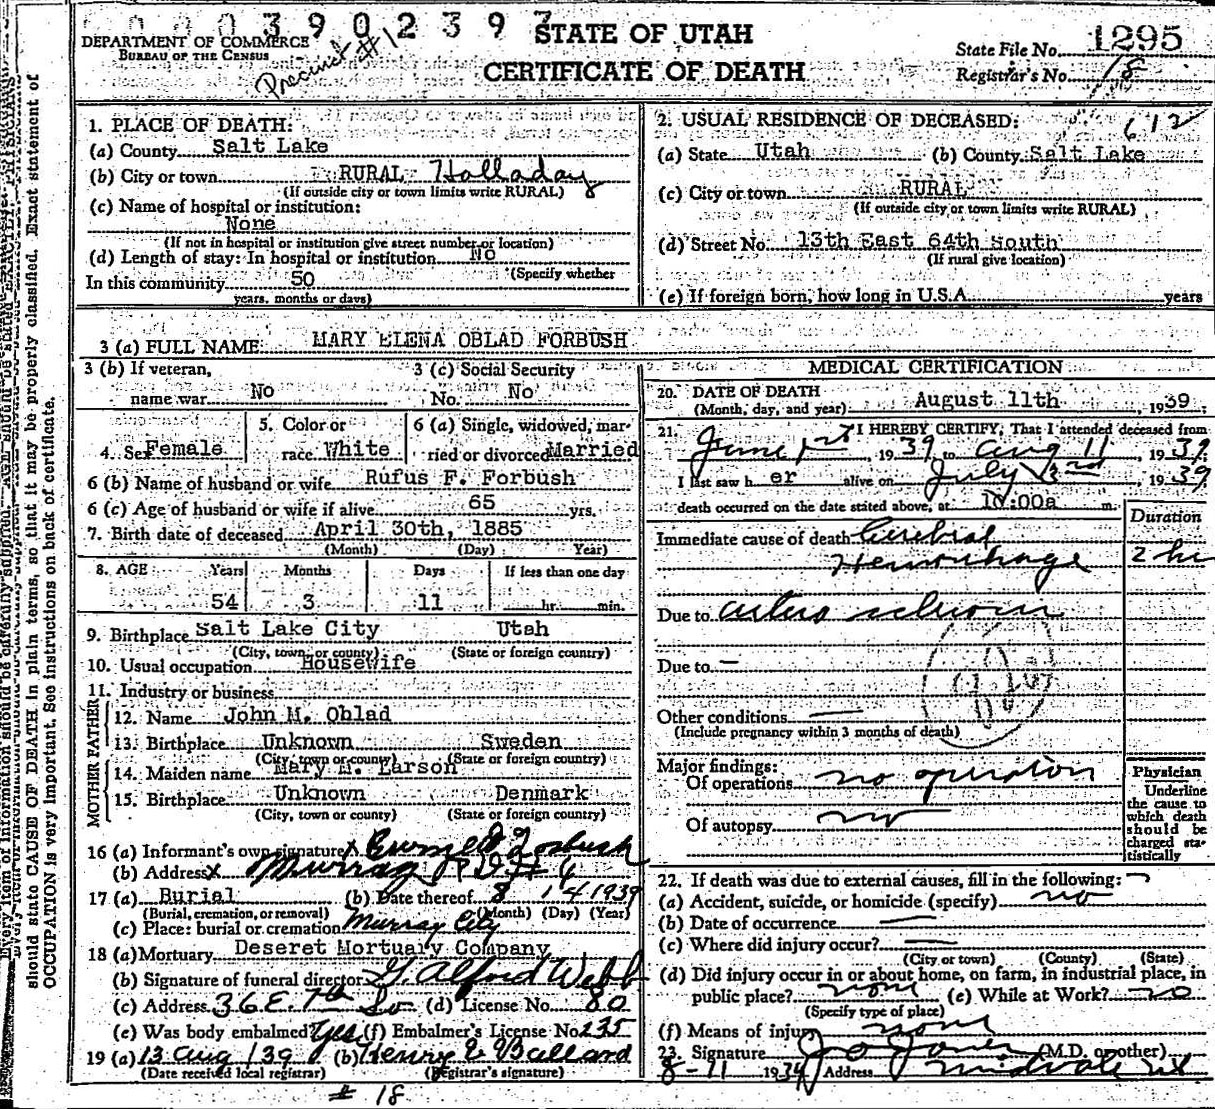 0003902397
STATE OF UTAH
CERTIFICATE OF DEATH
DEPARTMENT OF COMMERCE
BUREAU OF THE CENSUS
Precinct #1
State File No. 1295
Registrar's No. 18
1. PLACE OF DEATH:
(a) County Salt Lake
(b) City or town RURAL Holladay
(If outside city or town limits write RURAL)
(c) Name of hospital or institution:
None
(If not in hospital or institution give street number or location)
(d) Length of stay: In hospital or institution No
(Specify whether
In this community 50
years, months or days)
2. USUAL RESIDENCE OF DECEASED: 612
(a) State Utah (b) County Salt Lake
(c) City or town RURAL
(If outside city or town limits write RURAL)
(d) Street No. 13th East 64th South
(If rural give location)
(e) If foreign born, how long in U.S.A. years
3 (a) FULL NAME MARY ELENA OBLAD FORBUSH
3 (b) If veteran, 3 (c) Social Security
name war No No. No
4. Sex Female 5. Color or race White 6 (a) Single, widowed, married or divorced Married
6 (b) Name of husband or wife Rufus F. Forbush
6 (c) Age of husband or wife if alive 65 yrs.
7. Birth date of deceased April 30th, 1885
(Month) (Day) Year)
8. AGE Years Months Days If less than one day
54 3 11 hr. min.
9. Birthplace Salt Lake City Utah
(City, town, or county) (State or foreign country)
10. Usual occupation Housewife
11. Industry or business
FATHER
12. Name John M. Oblad
13. Birthplace Unknown Sweden
(City, town or county) (State or foreign country)
MOTHER
14. Maiden name Mary M. Larson
15. Birthplace Unknown Denmark
(City, town or county) (State or foreign country)
16 (a) Informant's own signature X Forbush
(b) Address X Murray R D # 6
17 (a) Burial (b) Date thereof 8 14 1939
(Burial, cremation, or removal) (Month) (Day) (Year)
(c) Place: burial or cremation Murray City
18 (a) Mortuary Deseret Mortuary Company
(b) Signature of funeral director G. Alford Webb
(c) Address 36 E. 7th So (d) License No. 80
(e) Was body embalmed? Yes (f) Embalmer's License No. 235
19 (a) 13 Aug 139 (b) Henry E Ballard
(Date received local registrar) (Registrar's signature)
# 18
MEDICAL CERTIFICATION
20. DATE OF DEATH
(Month, day, and year) August 11th, 1939
21. I HEREBY CERTIFY, That I attended deceased from
June 1st, 1939, to Aug 11, 1939.
I last saw her alive on July 3rd, 1939
death occurred on the date stated above, at 10:00a m.
Duration
Immediate cause of death Cerebral
Hemorrhage 2 hr
Due to arterio sclerosis
Due to —
Other conditions —
(Include pregnancy within 3 months of death)
Major findings:
Of operations no operation
Of autopsy no
Physician
Underline
the cause to
which death
should be
charged sta-
tistically
22. If death was due to external causes, fill in the following: —
(a) Accident, suicide, or homicide (specify) no
(b) Date of occurrence —
(c) Where did injury occur? —
(City or town) (County) (State)
(d) Did injury occur in or about home, on farm, in industrial place, in
public place? none (e) While at Work? no
(Specify type of place)
(f) Means of injury none
23. Signature J O Jones (M.D. or other)
8-11 1939 Address Midvale Ut
should state CAUSE OF DEATH in plain terms, so that it may be properly classified. Exact statement of
OCCUPATION is very important. See instructions on back of certificate.